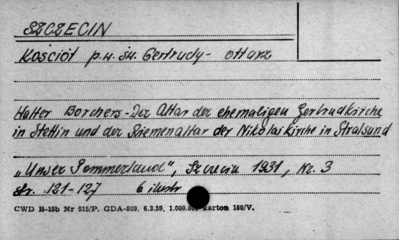 SZCZECIN
Kościół p.w. św. Gertrudy - ołtarz
Walter Borchers - Der Altar der ehemaligen Gertrudkirche
in Stettin und der Riemenaltar der Nikolaikirche in Stralsund
„Unser Pommerland", Szczecin 1931, Nr. 3
str. 121-127 6 ilustr
CWD B-15b Nr 515/P. GDA-809. 6.3.59. 1.000.00 karton 180/V.